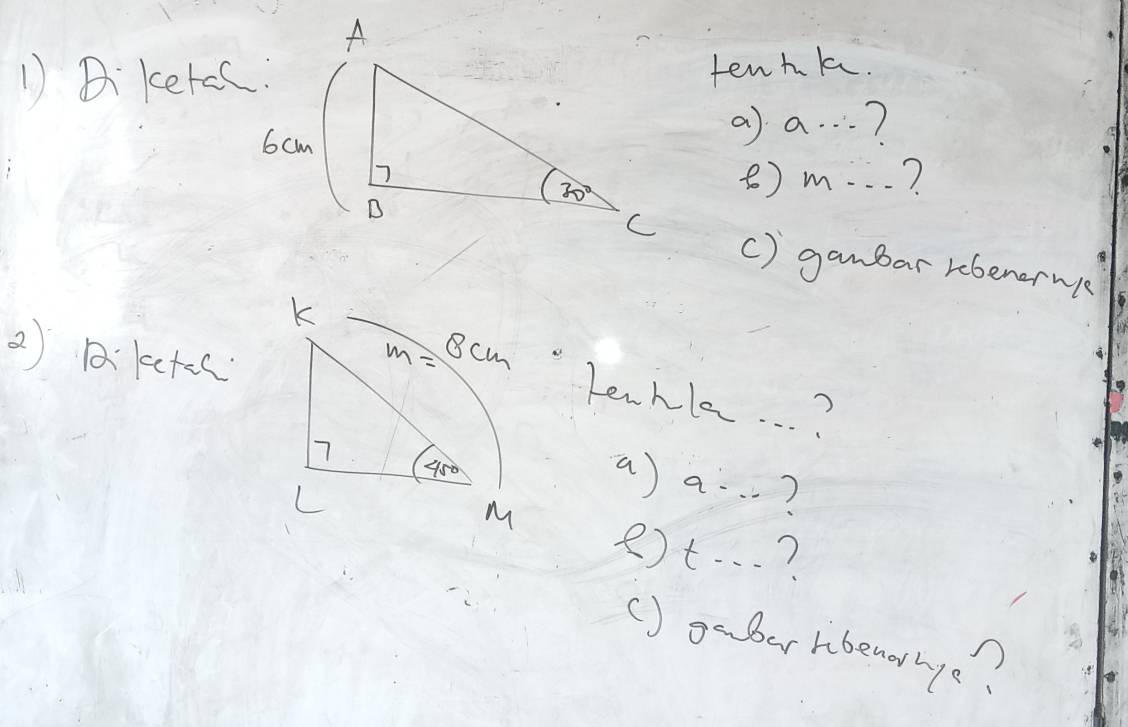 1) Diketah:
A
6cm
B
30°
C
tentuka.
a) a...?
b) m ...?
c) gambar sebenarnya
2) Diketah:
K
m = 8cm
45°
L
M
tentuka ...?
a) a...?
b) t...?
c) gambar sebenarnya?